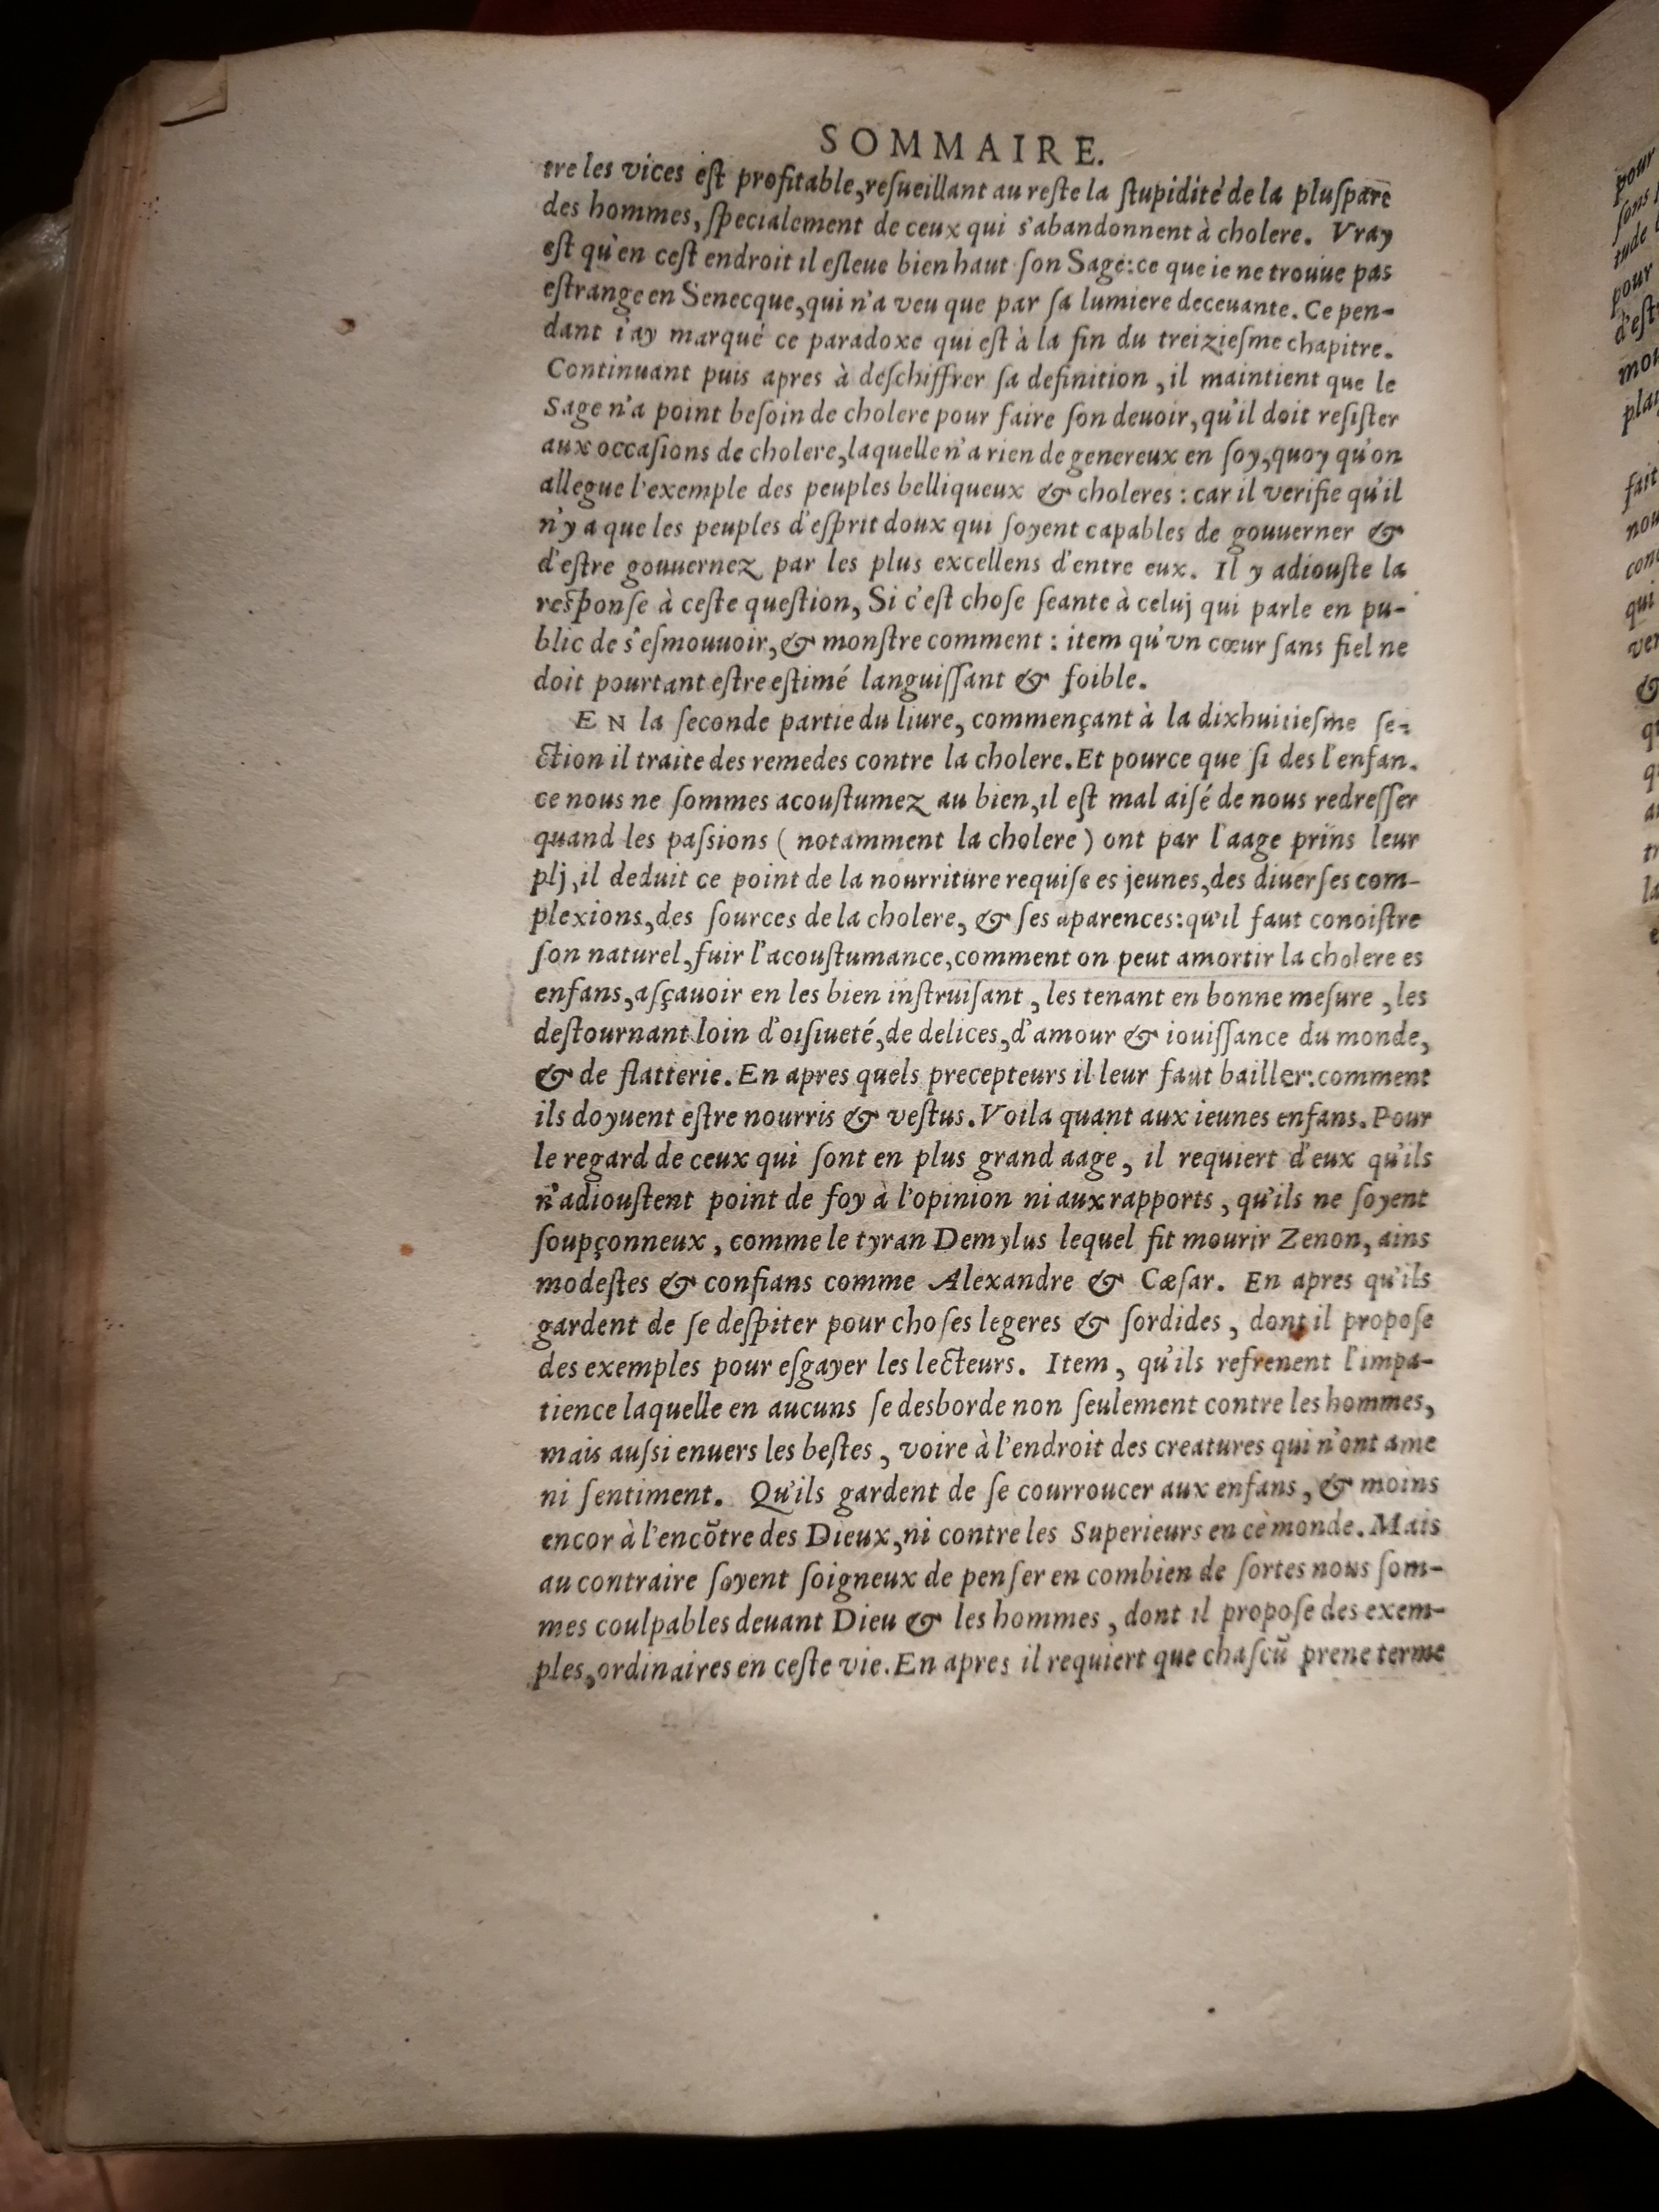 SOMMAIRE.
tre les vices eſt profitable,reſueillant au reſte la ſtupidité de la pluſpart
des hommes, ſpecialement de ceux qui s'abandonnent à cholere. Vray
eſt qu'en ceſt endroit il eſleue bien haut ſon Sage:ce que ie ne trouue pas
eſtrange en Senecque,qui n'a veu que par ſa lumiere deceuante. Ce pen-
dant i'ay marqué ce paradoxe qui eſt à la fin du treizieſme chapitre.
Continuant puis apres à deſchiffrer ſa definition ,il maintient que le
Sage n'a point beſoin de cholere pour faire ſon deuoir,qu'il doit reſiſter
aux occaſions de cholere,laquelle n'a rien de genereux en ſoy,quoy qu'on
allegue l'exemple des peuples belliqueux & choleres : car il verifie qu'il
n'y a que les peuples d'eſprit doux qui ſoyent capables de gouuerner &
d'eſtre gouuernez par les plus excellens d'entre eux. Il y adiouſte la
reſponſe à ceſte queſtion, Si c'eſt choſe ſeante à celuj qui parle en pu-
blic de s'eſmouuoir,& monſtre comment : item qu'vn cœur ſans fiel ne
doit pourtant eſtre eſtimé languiſſant & foible.
EN la ſeconde partie du liure, commençant à la dixhuitieſme ſe-
ction il traite des remedes contre la cholere.Et pource que ſi des l'enfan-
ce nous ne ſommes acouſtumez au bien,il eſt mal aiſé de nous redreſſer
quand les paſsions ( notamment la cholere ) ont par l'aage prins leur
plj,il deduit ce point de la nourriture requiſe es jeunes,des diuerſes com-
plexions,des ſources de la cholere, & ſes aparences:qu'il faut conoiſtre
ſon naturel,fuir l'acouſtumance,comment on peut amortir la cholere es
enfans,aſçauoir en les bien inſtruiſant , les tenant en bonne meſure , les
deſtournant loin d'oiſiueté,de delices,d'amour & iouiſſance du monde,
& de flatterie. En apres quels precepteurs il leur faut bailler:comment
ils doyuent eſtre nourris & veſtus. Voila quant aux ieunes enfans. Pour
le regard de ceux qui ſont en plus grand aage , il requiert d'eux qu'ils
n'adiouſtent point de foy à l'opinion ni aux rapports , qu'ils ne ſoyent
ſoupçonneux , comme le tyran Demylus lequel fit mourir Zenon, ains
modeſtes & confians comme Alexandre & Cæſar. En apres qu'ils
gardent de ſe deſpiter pour choſes legeres & ſordides , dont il propoſe
des exemples pour eſgayer les lecteurs. Item , qu'ils refrenent l'impa-
tience laquelle en aucuns ſe desborde non ſeulement contre les hommes,
mais auſsi enuers les beſtes , voire à l'endroit des creatures qui n'ont ame
ni ſentiment. Qu'ils gardent de ſe courroucer aux enfans , & moins
encor à l'encõtre des Dieux,ni contre les Superieurs en ce monde. Mais
au contraire ſoyent ſoigneux de penſer en combien de ſortes nous ſom-
mes coulpables deuant Dieu & les hommes , dont il propoſe des exem-
ples,ordinaires en ceſte vie. En apres il requiert que chaſcũ prene terme